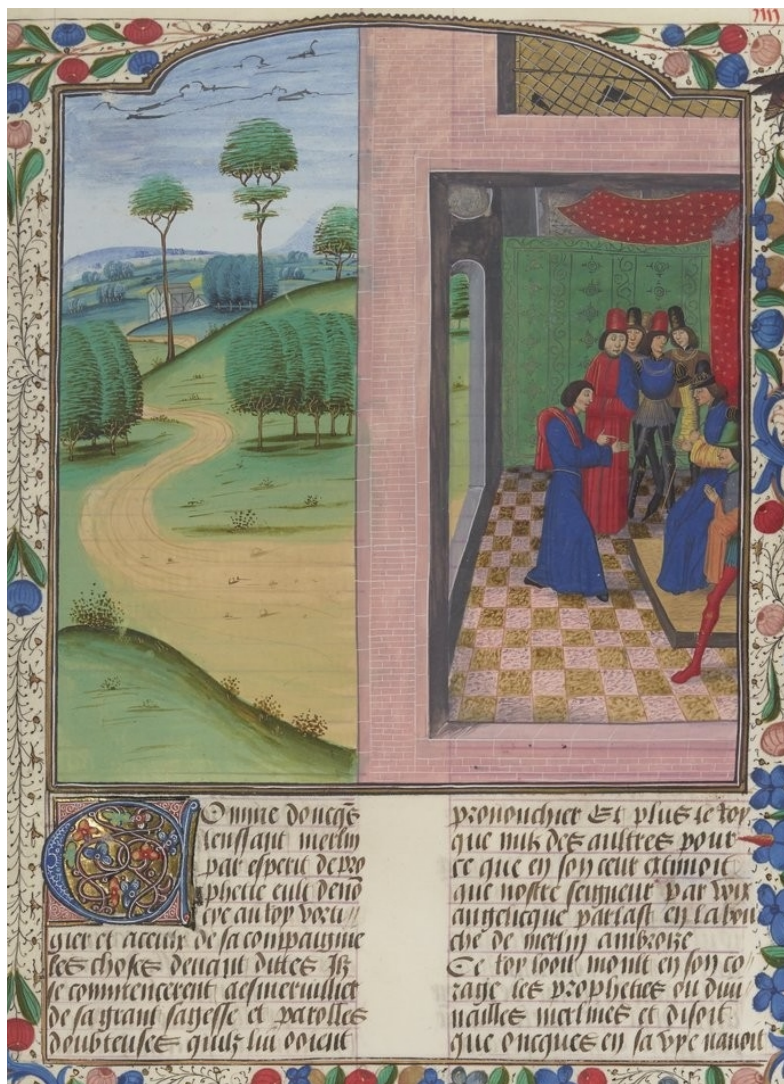 Comme doncq̄s
lenffant merlin
par esperit de pro
phetie eult deno
cye au roy vorti//
gier et aceulx de sa compaignie
les choses deuant dittes Ilz
se commencerent aesmeruillier
de sa grant sagesse et parolles
doubteuses quilz lui ooient
pronouchier Et plus le roy
que nulz des aultres pour
ce que en son ceur extimoit
que nostre seigneur par voix
angelicque parlast en la bou
che de merlin ambroize
Ce roy looit moult en son co
rage les propheties ou diui
nailles merlines et disoit
que oncques en sa vye nauoit